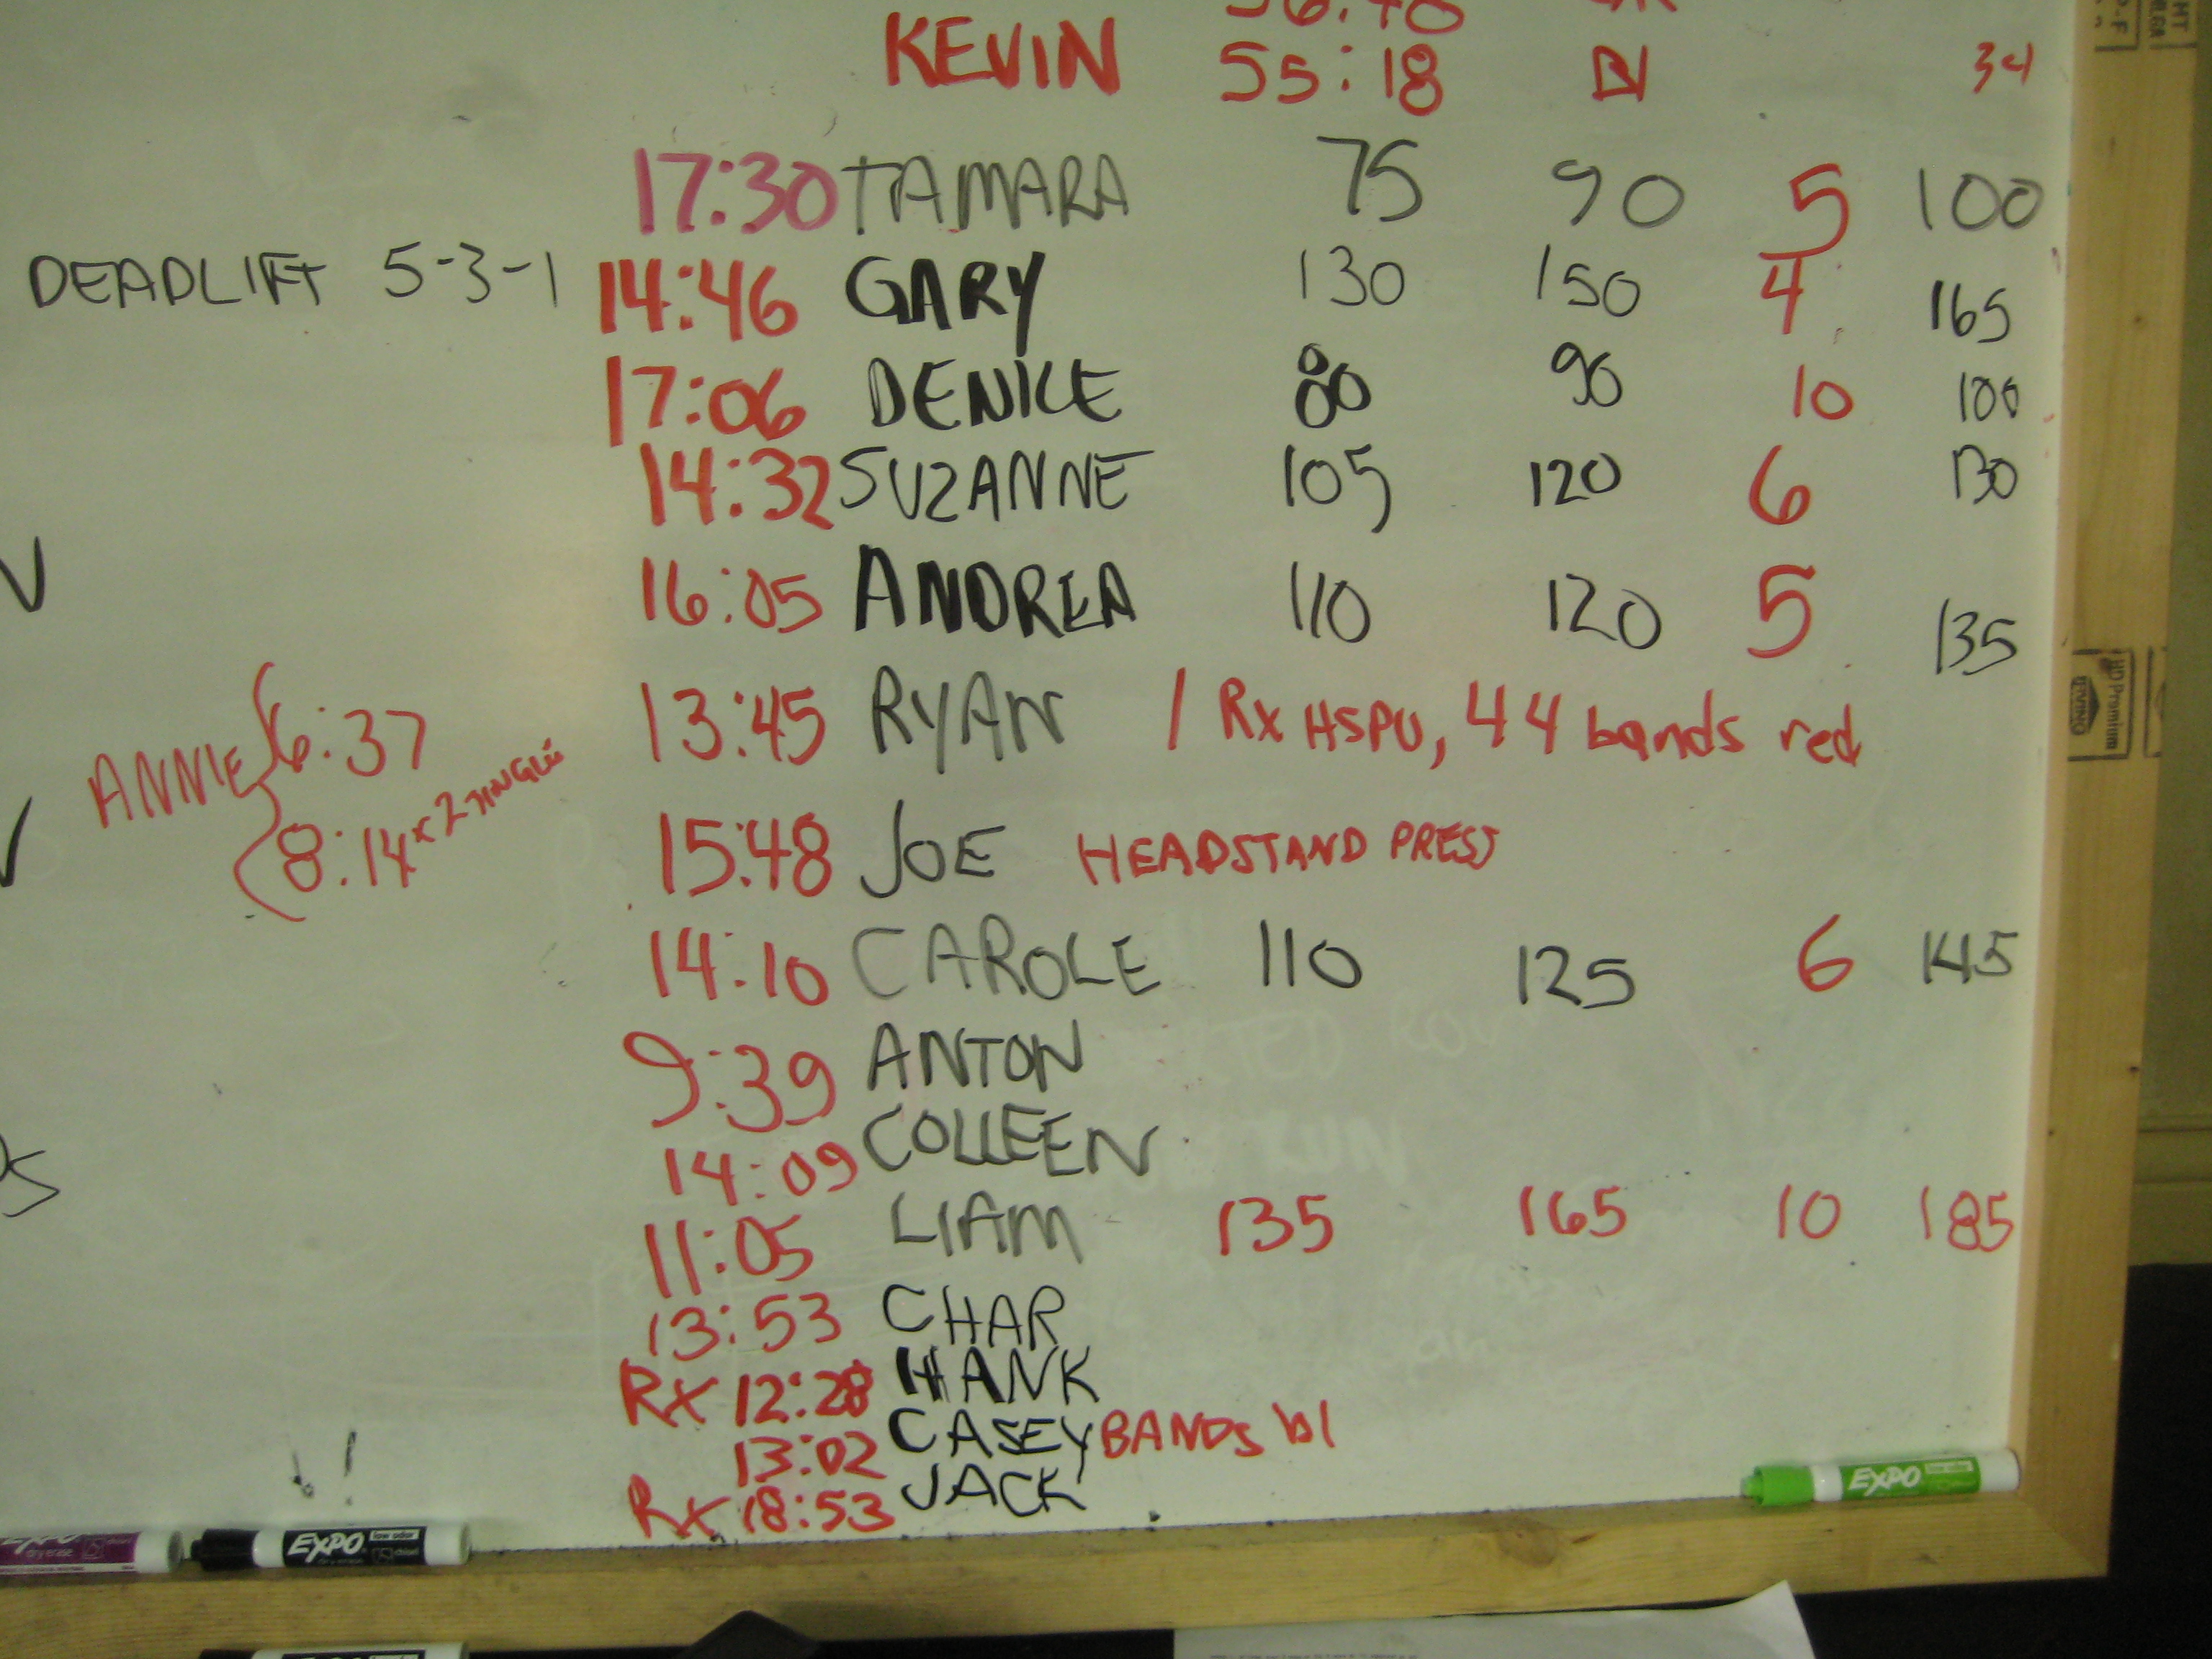 KEVIN 55:18 34
17:30 TAMARA 75 90 5 100
DEADLIFT 5-3-1
14:46 GARY 130 150 4 165
17:06 DENICE 80 90 10 100
14:32 SUZANNE 105 120 6 130
16:05 ANDREA 110 120 5 135
13:45 RYAN / Rx HSPU, 44 bands red
ANNIE 6:37
8:14 x 2 SINGLES
15:48 JOE HEADSTAND PRESS
14:10 CAROLE 110 125 6 145
9:39 ANTON
14:09 COLLEEN
11:05 LIAM 135 165 10 185
13:53 CHAR
Rx 12:28 HANK
13:02 CASEY BANDS bl
Rx 18:53 JACK
EXPO low odor
EXPO low odor
EXPO dry erase
HD Premium